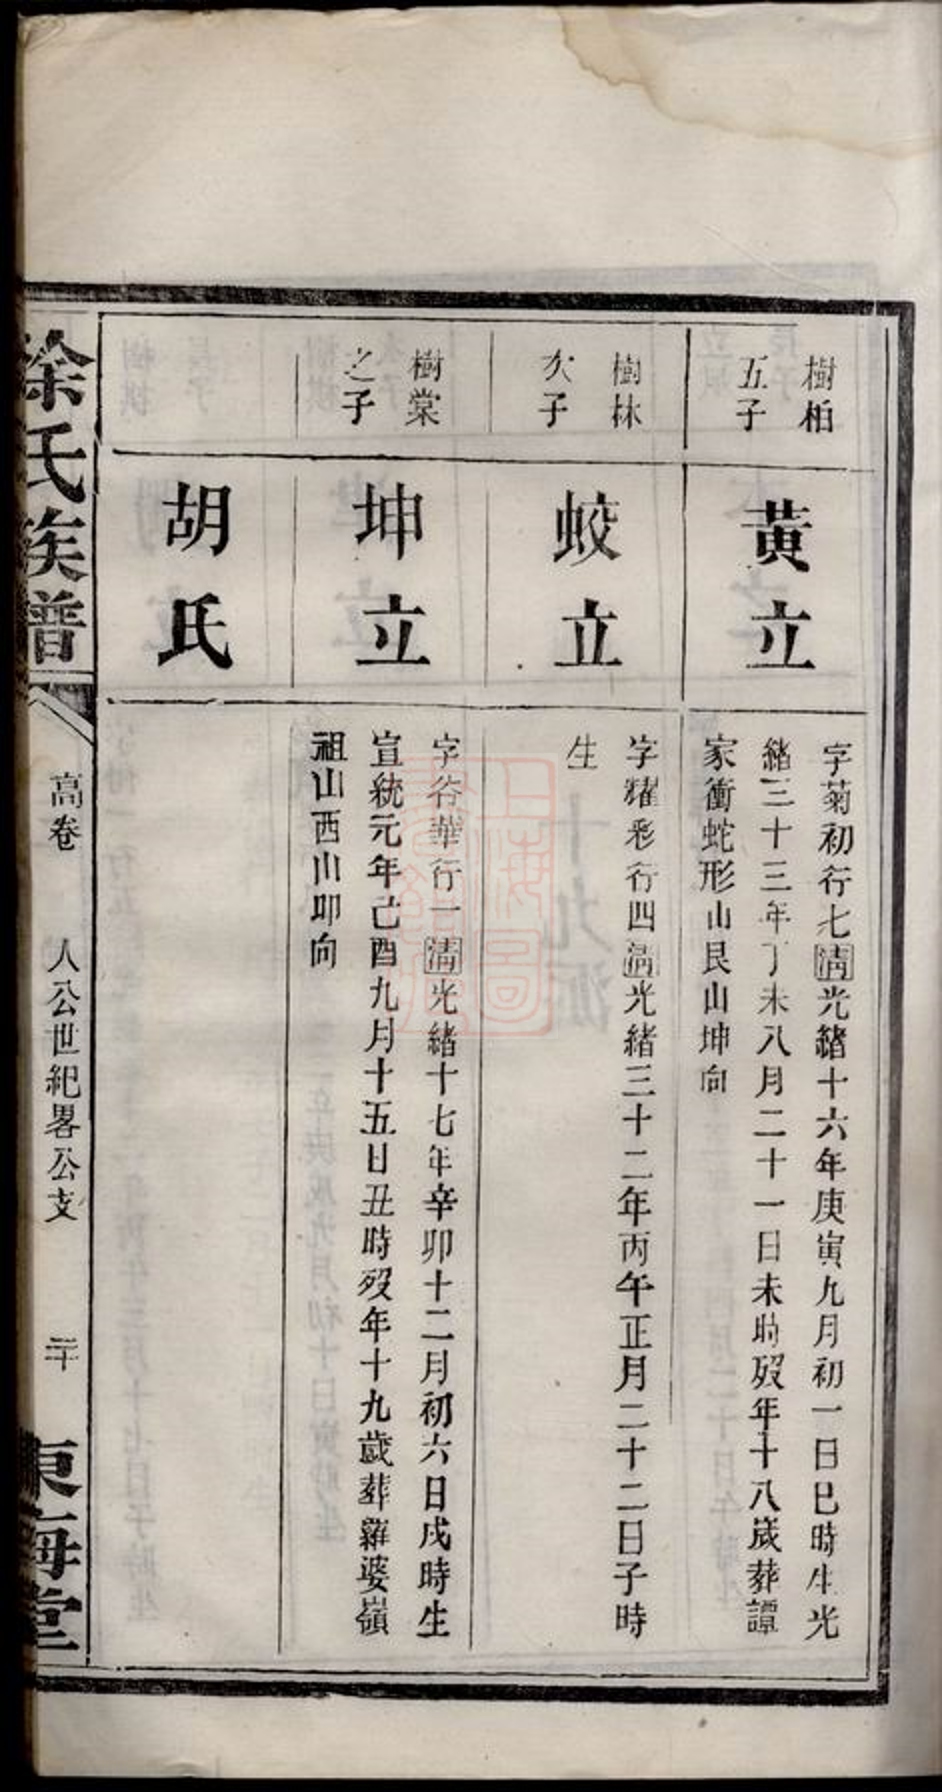 樹柏
五子
黃立
字菊初行七清光緒十六年庚寅九月初一日巳時生光
緒三十三年丁未八月二十一日未時歿年十八歲葬譚
家衝蛇形山艮山坤向
樹林
次子
蛟立
字耀彩行四清光緒三十二年丙午正月二十二日子時
生
樹棠
之子
坤立
字谷華行一清光緒十七年辛卯十二月初六日戌時生
宣統元年己酉九月十五日丑時歿年十九歲葬羅婆嶺
祖山西山卯向
胡氏
徐氏族譜
高卷
人公世紀畧公支
二十
東海堂
上海圖